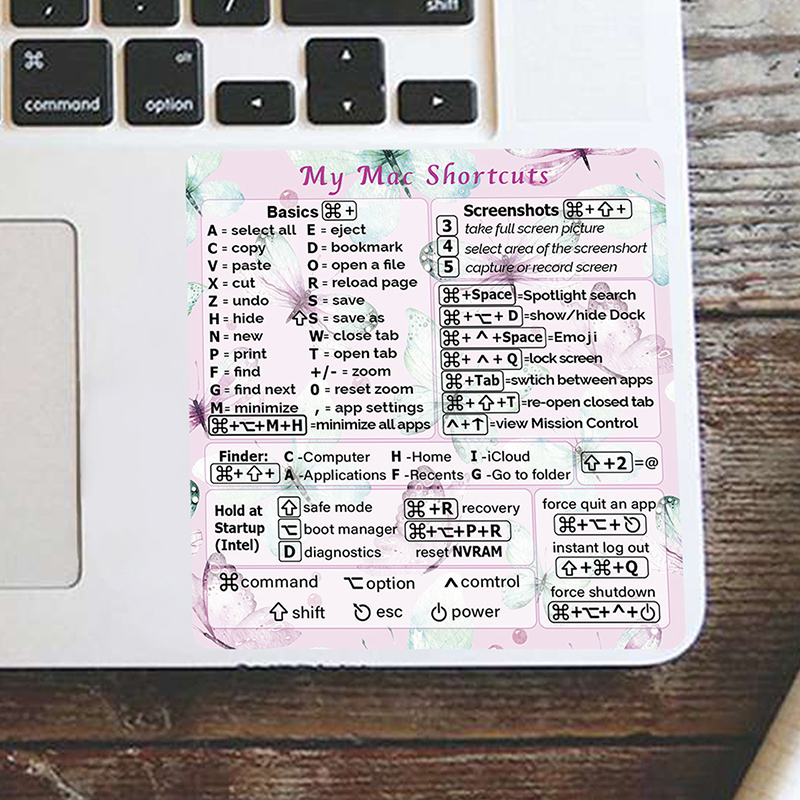 , . / shift
⌘ alt
command option
◄ ▲ ►
▼
My Mac Shortcuts
Basics ⌘+
A = select all E = eject
C = copy D = bookmark
V = paste O = open a file
X = cut R = reload page
Z = undo S = save
H = hide ⇧S = save as
N = new W= close tab
P = print T = open tab
F = find +/- = zoom
G = find next 0 = reset zoom
M= minimize , = app settings
⌘+⌥+M+H =minimize all apps
Screenshots ⌘+⇧+
3 take full screen picture
4 select area of the screenshort
5 capture or record screen
⌘+Space=Spotlight search
⌘+⌥+ D =show/hide Dock
⌘+ ^ +Space=Emoji
⌘+ ^ + Q =lock screen
⌘+Tab =swtich between apps
⌘+⇧+T =re-open closed tab
^+↑=view Mission Control
Finder: C -Computer H -Home I -iCloud
⌘+⇧+ A -Applications F -Recents G -Go to folder
⇧+2 =@
Hold at
Startup
(Intel)
⇧ safe mode ⌘+R recovery
⌥ boot manager ⌘+⌥+P+R
D diagnostics reset NVRAM
force quit an app
⌘+⌥+⎋
instant log out
⇧+⌘+Q
force shutdown
⌘+⌥+^+⏻
⌘command ⌥option ^comtrol
⇧shift ⎋ esc ⏻ power